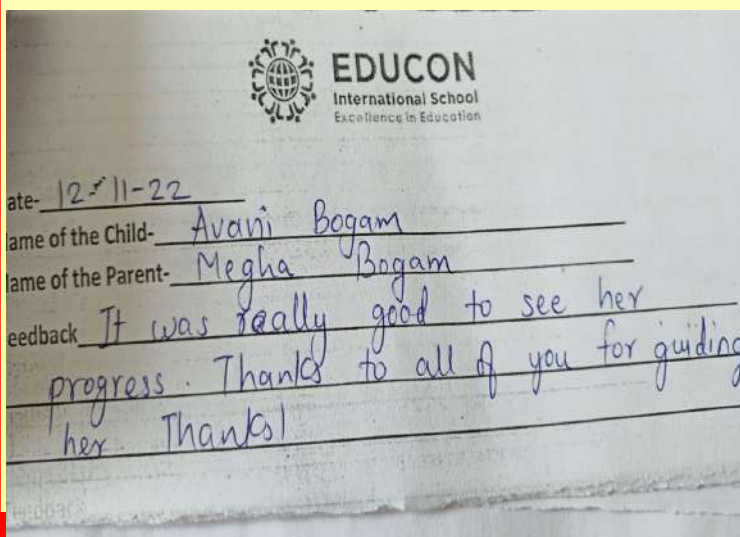 EDUCON
International School
Excellence in Education
ate- 12-11-22
ame of the Child- Avani Bogam
ame of the Parent- Megha Bogam
eedback It was really good to see her
progress. Thanks to all of you for guiding
her. Thanks!